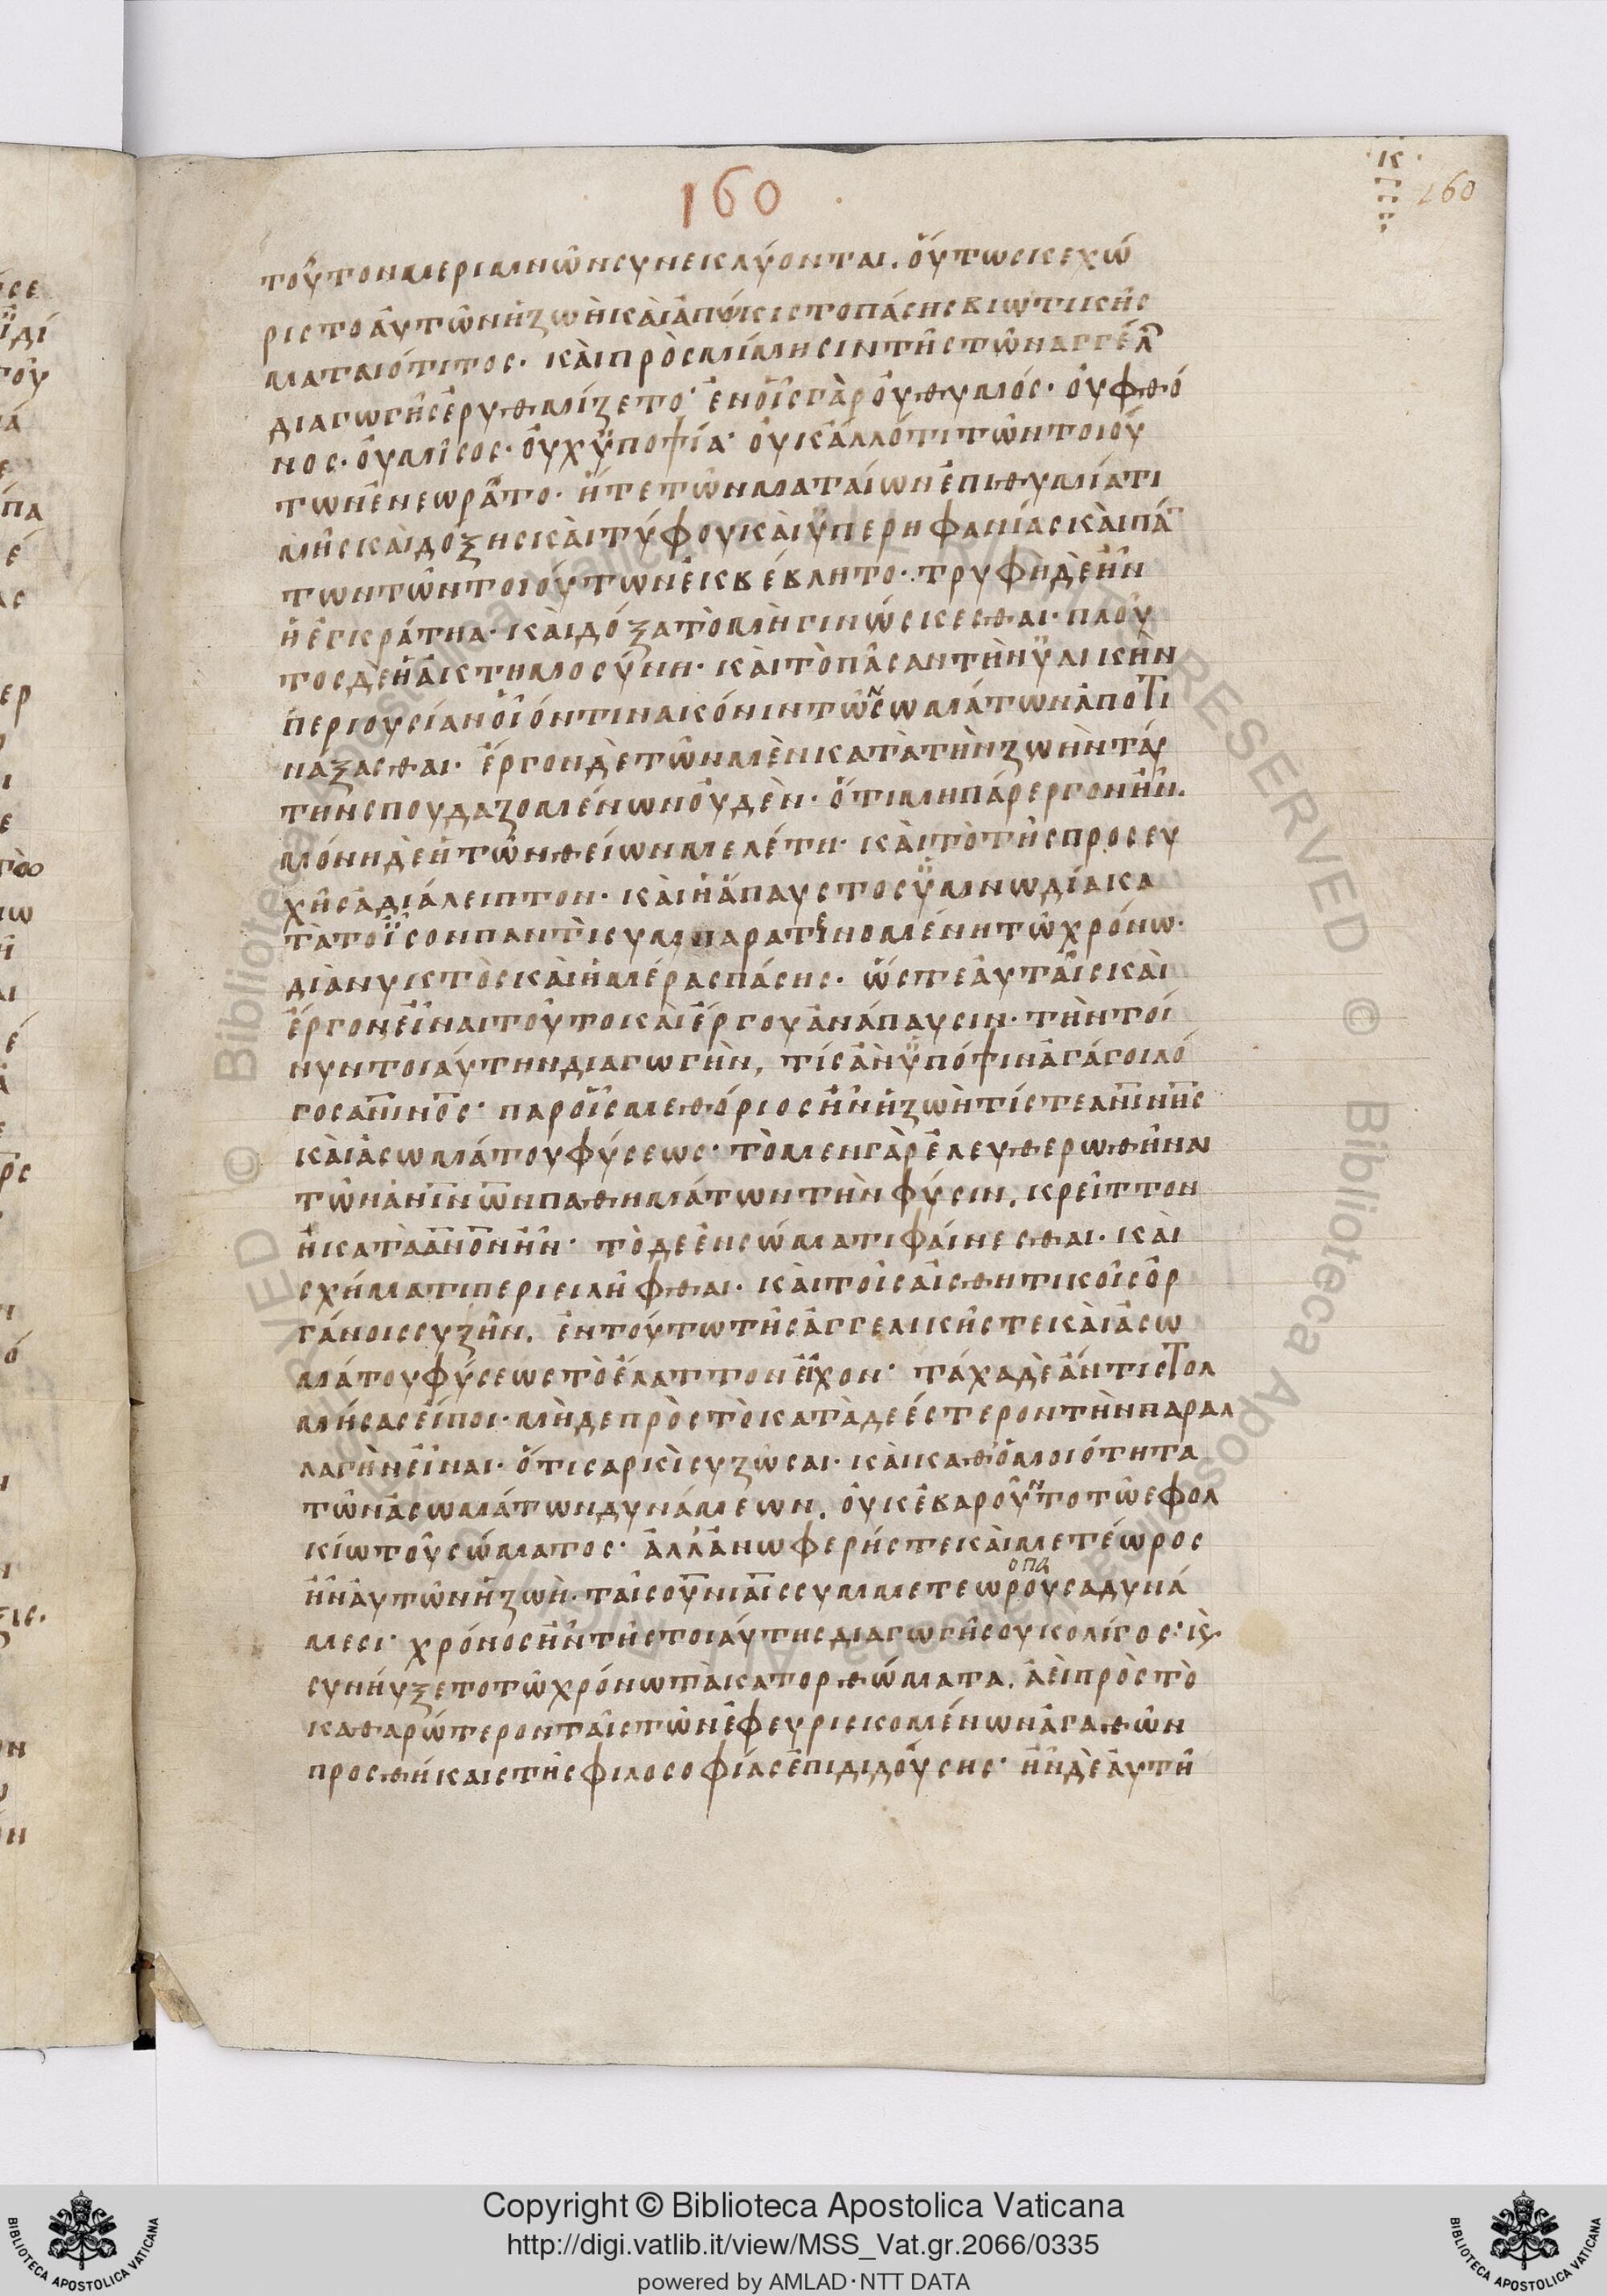 160
·Κ·
160
τούτον μεριμνῶν συνεκλύονται. οὕτως κεχώ
ριστο ἀυτῶν ἡ ζωὴ καὶ ἀπώκιστο πάσης βιωτικῆς
ματαιότιτος· κὰι πρὸς μίμησιν τῆς τῶν αγγέλ
διαγωγῆς ἐρυθμίζετο· ἐν οἷς γὰρ ὀυ θυμός· ὀυ φθό
νος· ὀυ μῖσος· ὀυχ ὑποψία· ὀυκ ἄλλό τι τῶν τοιού
των ἐνεωρᾶτο· ἥτε τῶν ματαίων ἐπιθυμία τι
μῆς κὰι δοξης κὰι τύφου κὰι ὑπερηφανίας κὰι πά
των τῶν τοιούτων ἐκβέβλητο· τρυφὴ δὲ ἦν
ἡ ἐγκράτηα· κὰι δόξα τὸ μὴ γινώσκεσθαι· πλοῦ
τος δὲ ἡ ἀκτημοσύνη· κὰι τὸ πᾶσαν τὴν ὑλικὴν
περιουσίαν οἷόν τινα κόνιν τῶν σωμάτων ἀποτι
ναξασθαι· ἔργον δὲ τῶν μὲν κατὰ τὴν ζωὴν τάυ
την σπουδαζομένων ὀυδὲν· ὅτι μη πάρεργον ἦν.
μόνη δὲ ἡ τῶν θείων μελέτη· κὰι τὸ τῆς προσευ
χῆς ἀδιάλειπτον· κὰι ἡ ἄπαυστος ὑμνωδία κα
τὰ τοῖσον παντὶ συμπαρατεινομένη τῶ χρόνω·
διὰ νυκτὸς κὰι ἡμέρας πάσης· ὥστε ἀυταῖς κὰι
ἔργον εἶναι τοῦτο κὰι ἔργου ἀνάπαυσιν· τὴν τοί
νυν τοιάυτην διαγωγὴν, τίς ἂν ὑπόψιν ἀγάγοι λό
γος ανινος· παρ οἷς μεθόριος ἦν ἡ ζωὴ τίς τε ανινης
κὰι ἀσωμάτου φύσεως· τὸ μεν γὰρ ἐλευθερωθῆναι
τῶν ἀνινων παθημάτων τὴν φύσιν, κρεῖττον
ἢ κατὰ ανον ἦν· τὸ δε ἐν σώματι φάινεσθαι· κὰι
σχήματι περιειλῆφθαι· κὰι τοῖς ἀισθητικοῖς ὀρ
γάνοις συζῆν, ἐν τούτω τῆς ἀγγελικῆς τε κὰι ἀσω
μάτου φύσεως τὸ ἔλαττον εἶχον· τάχα δὲ ἄν τις τολ
μήσας εἴποι· μὴδε πρὸς τὸ καταδεέστερον τὴν παραλ
λαγὴν εἶναι· ὅτι σαρκὶ συζῶσαι· κὰι καθ ὁμοιότητα
τῶν ἀσωμάτων δυνάμεων, ὀυκ ἐβαροῦντο τῶ εφολ
κίω τοῦ σώματος· ἀλλ' ἀνωφερής τε κὰι μετέωρος
ἦν ἀυτῶν ἡ ζωὴ· ταῖς ουνιαις συμμετεωροπορουσα δυνά
μεσι· χρόνος ἦν τῆς τοιάυτης διαγωγῆς ουκ ολίγος· κ
συνήυξετο τῶ χρόνω τὰ κατορθώματα, ἀεὶ πρὸς τὸ
καθαρώτερον ταῖς τῶν ἐφευρισκομένων ἀγαθῶν
προσθήκαις τῆς φιλοσοφίας ἐπιδιδούσης· ἦν δὲ ἀυτῆ
Copyright © Biblioteca Apostolica Vaticana
http://digi.vatlib.it/view/MSS_Vat.gr.2066/0335
powered by AMLAD·NTT DATA